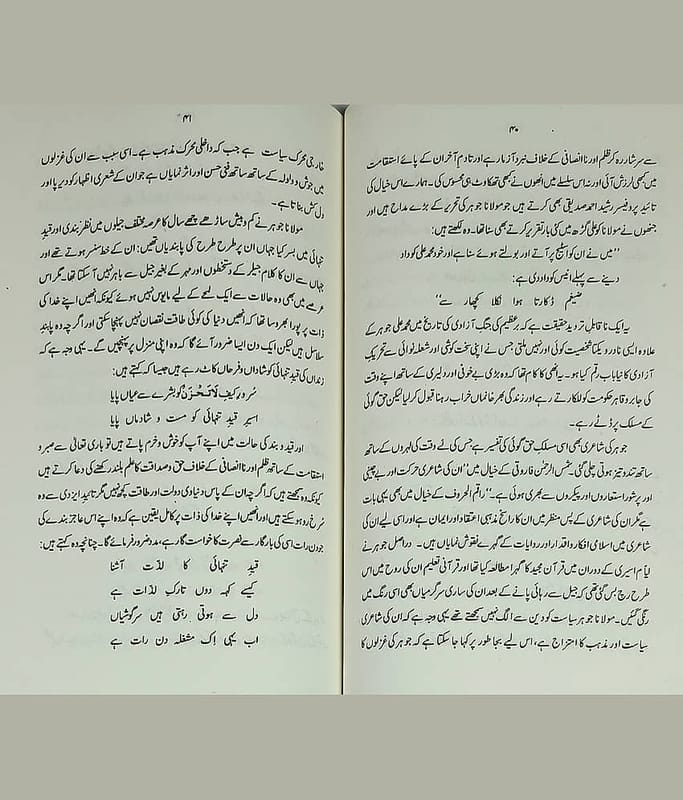 ۴۰
سے سرشار رہ کر ظلم اور ناانصافی کے خلاف نبرد آزما رہے اور تا دمِ آخر ان کے پائے استقامت
میں کبھی لرزش آئی اور نہ اس سلسلے میں انھوں نے کبھی تھکاوٹ ہی محسوس کی۔ ہمارے اس خیال کی
تائید پروفیسر رشید احمد صدیقی بھی کرتے ہیں جو مولانا جوہر کی تحریر کے بڑے مداح ہیں اور
جنھوں نے مولانا کو علی گڑھ میں کئی بار تقریر کرتے بھی سنا تھا۔ وہ لکھتے ہیں:
’’میں نے ان کو اسٹیج پر آتے اور بولتے ہوئے سنا ہے اور خود محمد علی کو داد
دینے سے پہلے انیس کو داد دی ہے:
ضیغم ڈکارتا ہوا نکلا کچھار سے‘‘
یہ ایک ناقابلِ تردید حقیقت ہے کہ برعظیم کی جنگِ آزادی کی تاریخ میں محمد علی جوہر کے
علاوہ ایسی نادر و یکتا شخصیت کوئی اور نہیں ملتی جس نے اپنی سخت کوشی اور شعلہ نوائی سے تحریکِ
آزادی کا نیا باب رقم کیا ہو۔ یہ انھی کا کام تھا کہ وہ بڑی بے خوفی اور دلیری کے ساتھ اپنے وقت
کی جابر و قاہر حکومت کو للکارتے رہے اور زندگی بھر خانماں خراب رہنا قبول کر لیا لیکن حق گوئی
کے مسلک پر ڈٹے رہے۔
جوہر کی شاعری بھی اسی مسلکِ حق گوئی کی تفسیر ہے جس کی لے وقت کی لہروں کے ساتھ
ساتھ تند و تیز ہوتی چلی گئی۔ شمس الرحمٰن فاروقی کے خیال میں ’’ان کی شاعری حرکت اور بے چینی
اور پرشور استعاروں اور پیکروں سے بھری ہوئی ہے۔‘‘ راقم الحروف کے خیال میں بھی یہی بات
ہے مگر ان کی شاعری کے پس منظر میں ان کا راسخ مذہبی اعتقاد اور ایمان ہے اور اسی لیے ان کی
شاعری میں اسلامی افکار و اقدار اور روایات کے گہرے نقوش نمایاں ہیں۔ دراصل جوہر نے
ایامِ اسیری کے دوران میں قرآن مجید کا گہرا مطالعہ کیا تھا اور قرآنی تعلیم ان کی روح میں اس
طرح رچ بس گئی تھی کہ جیل سے رہائی پانے کے بعد ان کی ساری سرگرمیاں بھی اسی رنگ میں
رنگی گئیں۔ مولانا جوہر سیاست کو دین سے الگ نہیں سمجھتے تھے یہی وجہ ہے کہ ان کی شاعری
سیاست اور مذہب کا امتزاج ہے، اس لیے بجا طور پر کہا جا سکتا ہے کہ جوہر کی غزلوں کا
۴۱
خارجی محرک سیاست ہے جب کہ داخلی محرک مذہب ہے۔ اسی سبب سے ان کی غزلوں
میں جوش و ولولہ کے ساتھ ساتھ فنی حسن اور اثر نمایاں ہے جو ان کے شعری اظہار کو دیرپا اور
دل کش بناتا ہے۔
مولانا جوہر نے کم و بیش ساڑھے چھے سال کا عرصہ مختلف جیلوں میں نظر بندی اور قیدِ
تنہائی میں بسر کیا جہاں ان پر طرح طرح کی پابندیاں تھیں: ان کے خط سنسر ہوتے تھے اور
جہاں سے ان کا کلام جیلر کے دستخطوں اور مہر کے بغیر جیل سے باہر نہیں آ سکتا تھا۔ مگر اس
عرصے میں بھی وہ حالات سے ایک لمحے کے لیے مایوس نہیں ہوئے کیونکہ انھیں اپنے خدا کی
ذات پر پورا بھروسا تھا کہ انھیں دنیا کی کوئی طاقت نقصان نہیں پہنچا سکتی اور اگرچہ وہ پابندِ
سلاسل ہیں لیکن ایک دن ایسا ضرور آئے گا کہ وہ اپنی منزل پر پہنچیں گے۔ یہی وجہ ہے کہ
زنداں کی قیدِ تنہائی کو شاداں و فرحاں کاٹ رہے ہیں جیسا کہ کہتے ہیں:
سُرور کیف لَا تَحْزَنْ کو بشرے سے عیاں پایا
اسیرِ قیدِ تنہائی کو مست و شادماں پایا
اور قید و بند کی حالت میں اپنے آپ کو خوش و خرم پاتے ہیں تو باری تعالیٰ سے صبر و
استقامت کے ساتھ ظلم اور ناانصافی کے خلاف حق و صداقت کا علم بلند رکھنے کی دعا کرتے ہیں
کیونکہ وہ سمجھتے ہیں کہ اگرچہ ان کے پاس دنیاوی دولت اور طاقت کچھ نہیں مگر تائیدِ ایزدی سے وہ
سُرخ رو ہو سکتے ہیں اور انھیں اپنے خدا کی ذات پر کامل یقین ہے کہ وہ اپنے اس عاجز بندے کی
جو دن رات اسی کی بارگاہ سے نصرت کا خواستگار ہے، مدد ضرور فرمائے گا۔ چنانچہ وہ کہتے ہیں:
قیدِ تنہائی کا لذت آشنا
کیسے کہہ دوں تارکِ لذات ہے
دل سے ہوتی رہتی ہیں سرگوشیاں
اب یہی اِک مشغلہ دن رات ہے